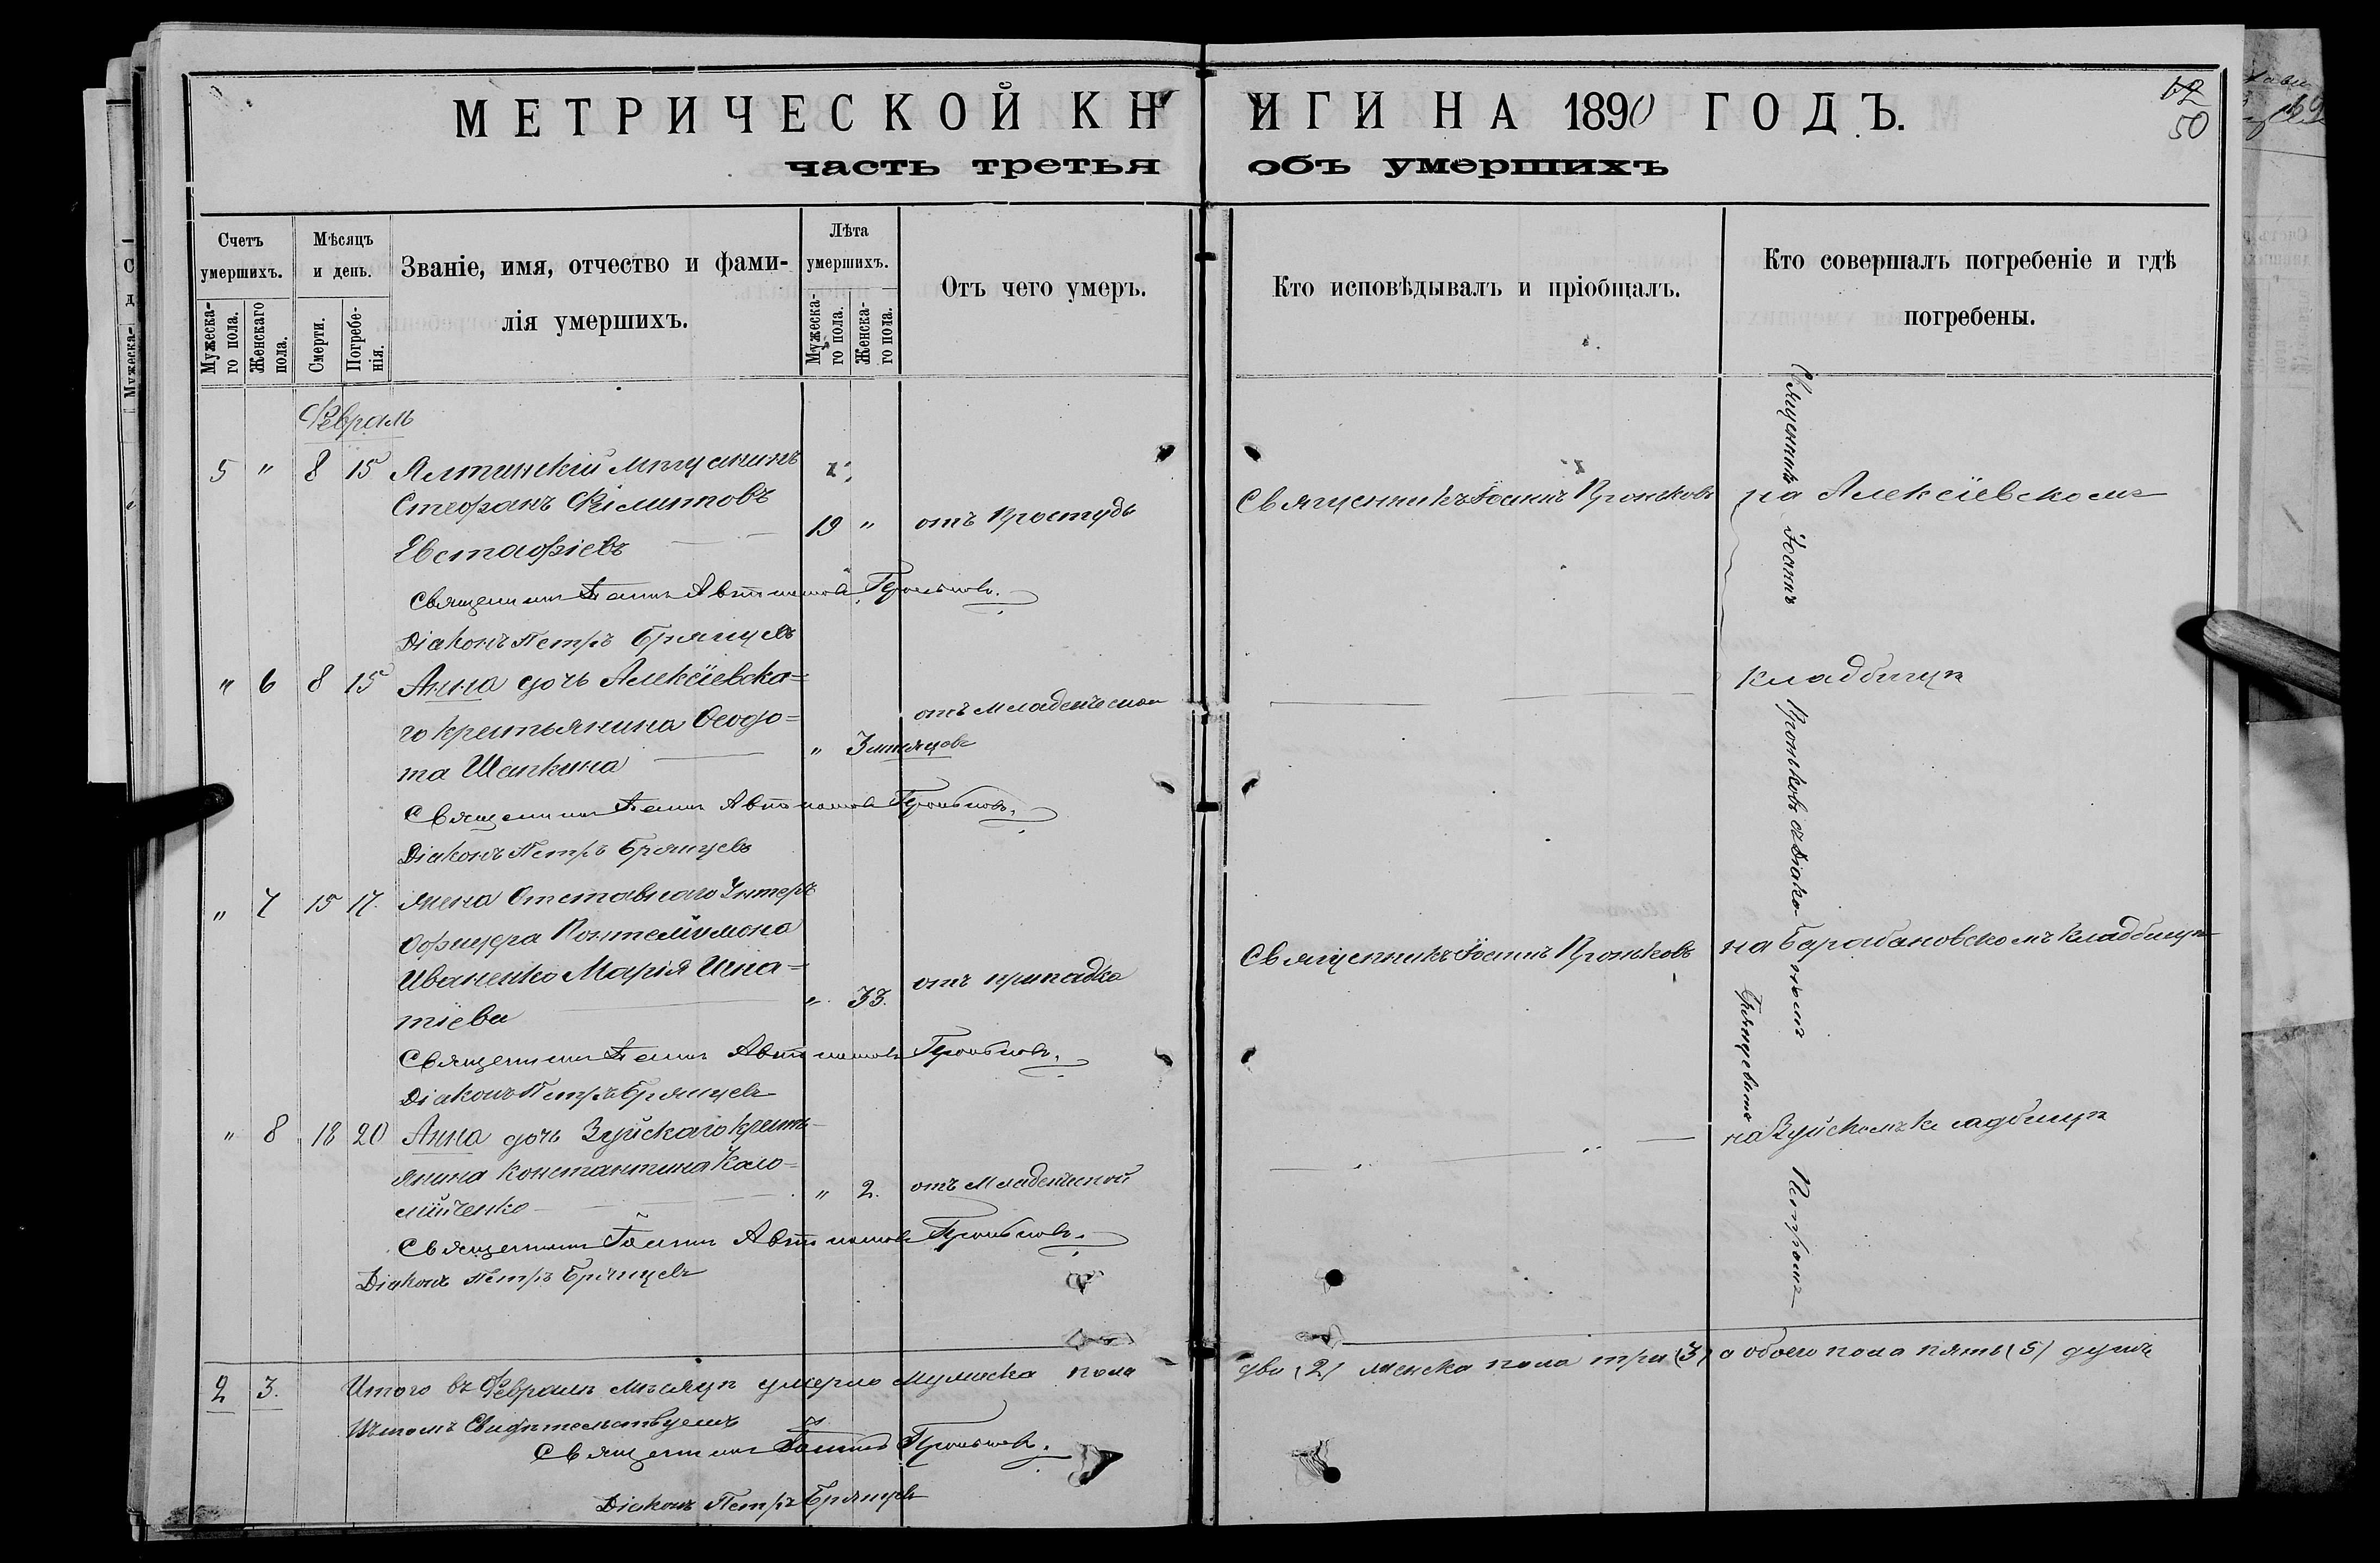 МЕТРИЧЕСКОЙ КНИГИ НА 1890 ГОДЪ.
62
50
часть третья объ умершихъ
Счетъ умершихъ.
Мужеска-го пола.
Женскаго пола.
Мѣсяцъ и день.
Смерти.
Погребе-нія.
Званіе, имя, отчество и фами-
лія умершихъ.
Лѣта умершихъ.
Мужеска-го пола.
Женска-го пола.
Отъ чего умеръ.
Кто исповѣдывалъ и пріобщалъ.
Кто совершалъ погребеніе и гдѣ
погребены.
Февраль
5 " 8 15 Ялтинскій мѣщанинъ
Стефанъ
Евстафіевъ 19 " отъ простуды Священникъ Іоаннъ Проньковъ на Алексіевскомъ
Священникъ Іоаннъ Автономовъ Проньковъ.
Діаконъ Петръ Брянцевъ
" 6 8 15 Анна дочь Алексіевска=
го крестьянина Ѳеодо=
та Шапкина " 3 мѣсяцовъ отъ младенческой кладбищѣ
Священникъ Іоаннъ Автономовъ Проньковъ.
Діаконъ Петръ Брянцевъ
" 7 15 17. жена Отставнаго Унтеръ
Офицера Понтелиймона
Иваненко Марія Игна=
тіева " 33. отъ припадка Священникъ Іоаннъ Проньковъ на Барабановскомъ кладбищѣ
Священникъ Іоаннъ Автономовъ Проньковъ.
Діаконъ Петръ Брянцевъ
" 8 18 20 Анна дочь Зуйскаго кресть-
янина Константина Коло=
мійченко " 2. отъ младенческой на Зуйскомъ кладбищѣ
Священникъ Іоаннъ Автономовъ Проньковъ.
Діаконъ Петръ Брянцевъ
Священникъ Іоаннъ Проньковъ съ діако-номъ Петромъ Брянцевымъ
2 3. Итого въ Февралѣ мѣсяцѣ умерло мужеска пола два (2) женска пола три (3) а обоего пола пять (5) душъ
Въ томъ свидѣтельствуемъ
Священникъ Іоаннъ Проньковъ.
Діаконъ Петръ Брянцевъ